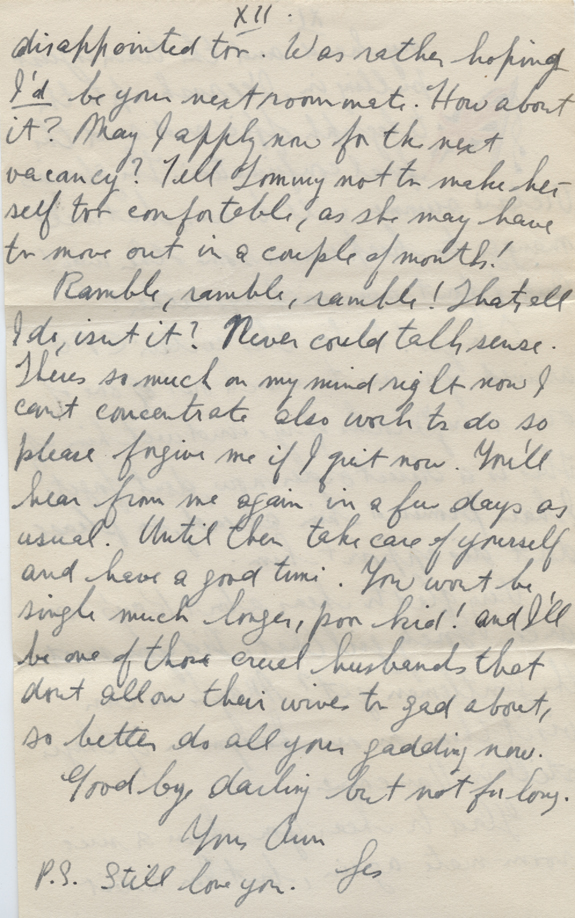 XII.
disappointed too. Was rather hoping
I'd be your next roommate. How about
it? May I apply now for the next
vacancy? Tell Tommy not to make her-
self too comfortable, as she may have
to move out in a couple of months!
Ramble, ramble, ramble! Thats all
I do, isnt it? Never could talk sense.
Theres so much on my mind right now I
cant concentrate also work to do so
please forgive me if I quit now. You'll
hear from me again in a few days as
usual. Until then take care of yourself
and have a good time. You wont be
single much longer, poor kid! and I'll
be one of those cruel husbands that
dont allow their wives to gad about,
so better do all your gadding now.
Good bye darling but not for long.
Your Own
Les
P.S. Still love you.